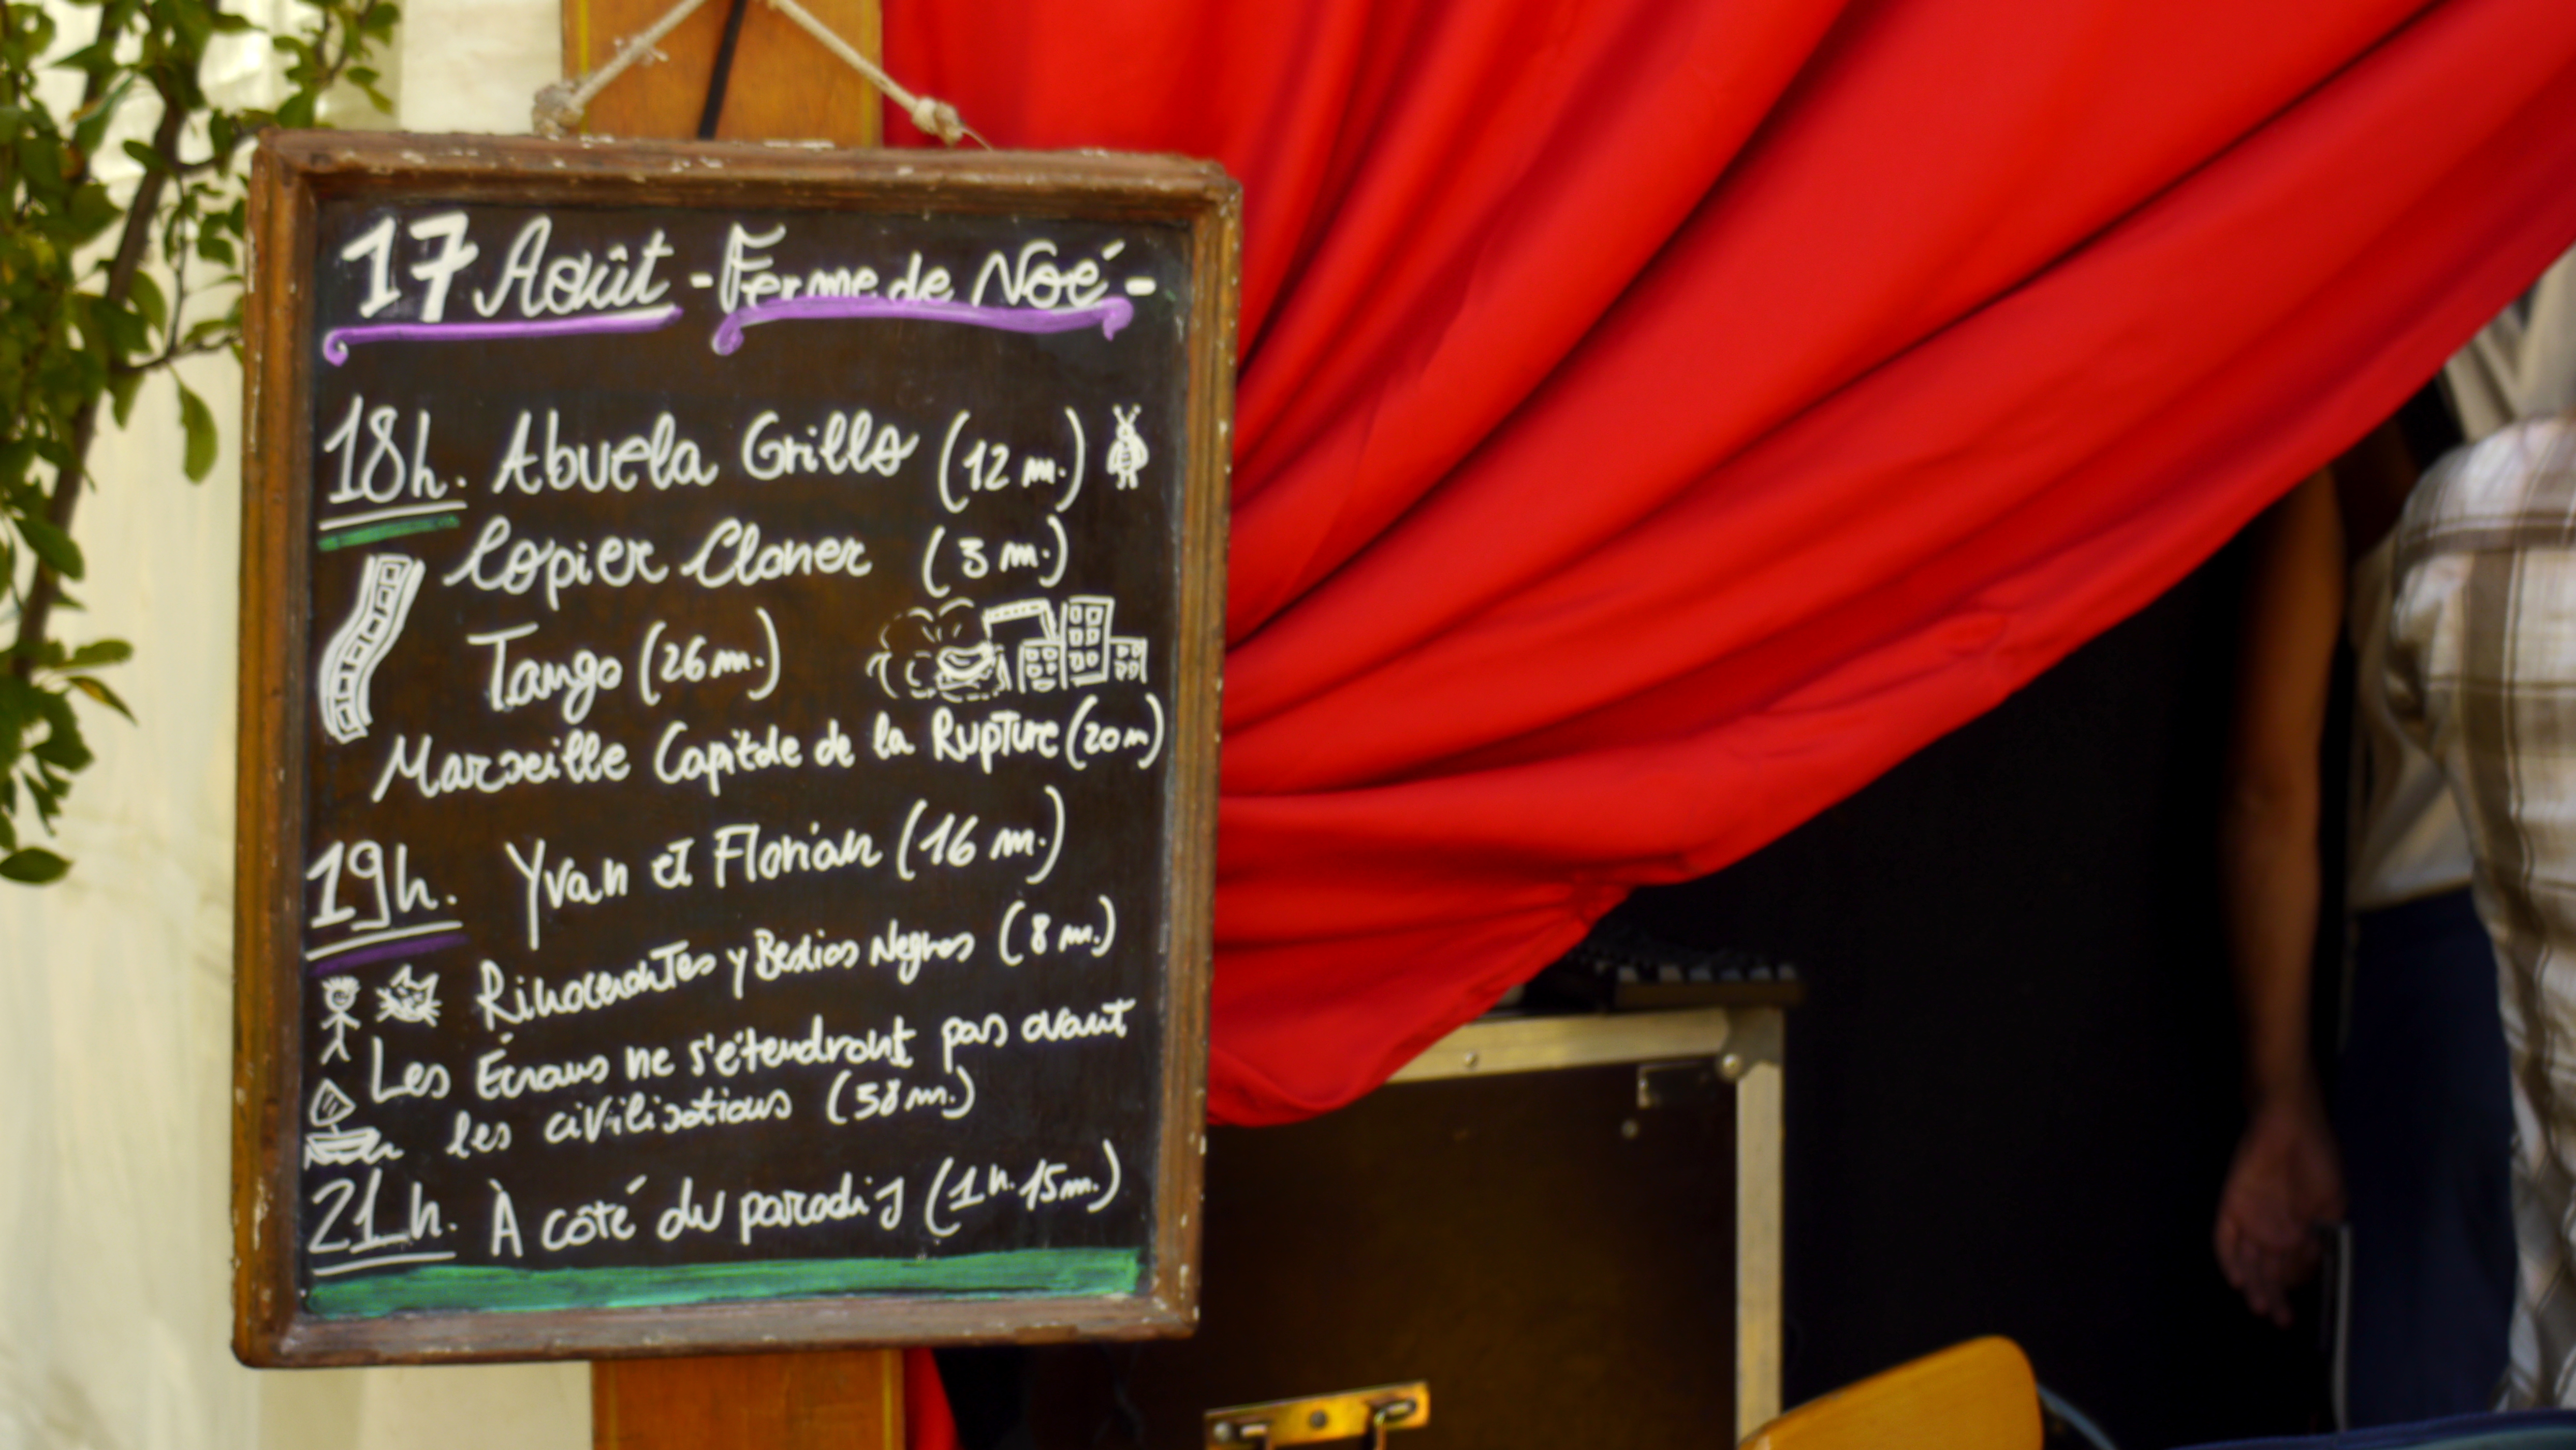 17 Août - Ferme de Noé -
18h. Abuela Grillo (12 m.)
Copier Cloner (3 m.)
Tango (26 m.)
Marseille Capitale de la Rupture (20 m)
19h. Yvan et Florian (16 m.)
Rinocerontes y Bestias Negras (8 m.)
Les Écrans ne s'étendront pas avant
les civilisations (58 m.)
21h. À côté du paradis (1h. 15m.)